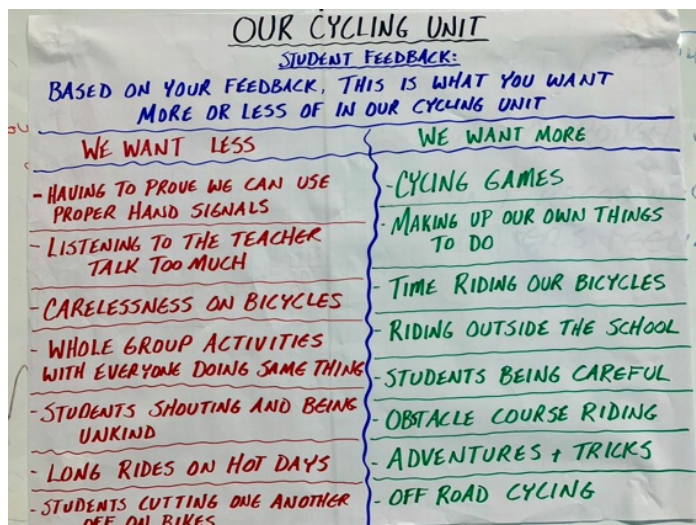 OUR CYCLING UNIT
STUDENT FEEDBACK:
BASED ON YOUR FEEDBACK, THIS IS WHAT YOU WANT
MORE OR LESS OF IN OUR CYCLING UNIT
WE WANT LESS
- HAVING TO PROVE WE CAN USE
PROPER HAND SIGNALS
- LISTENING TO THE TEACHER
TALK TOO MUCH
- CARELESSNESS ON BICYCLES
- WHOLE GROUP ACTIVITIES
WITH EVERYONE DOING SAME THING
- STUDENTS SHOUTING AND BEING
UNKIND
- LONG RIDES ON HOT DAYS
- STUDENTS CUTTING ONE ANOTHER
OFF ON BIKES
WE WANT MORE
- CYCLING GAMES
- MAKING UP OUR OWN THINGS
TO DO
- TIME RIDING OUR BICYCLES
- RIDING OUTSIDE THE SCHOOL
- STUDENTS BEING CAREFUL
- OBSTACLE COURSE RIDING
- ADVENTURES + TRICKS
- OFF ROAD CYCLING